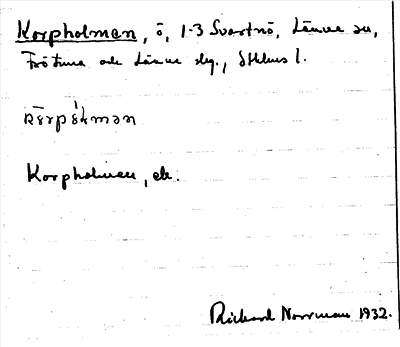 Korpholmen, ö, 1-3 Svartnö, Länna sn,
Frötuna och Länna slg., Sthlms l.
Korpholmen, ek.
Richard Norrman 1932.